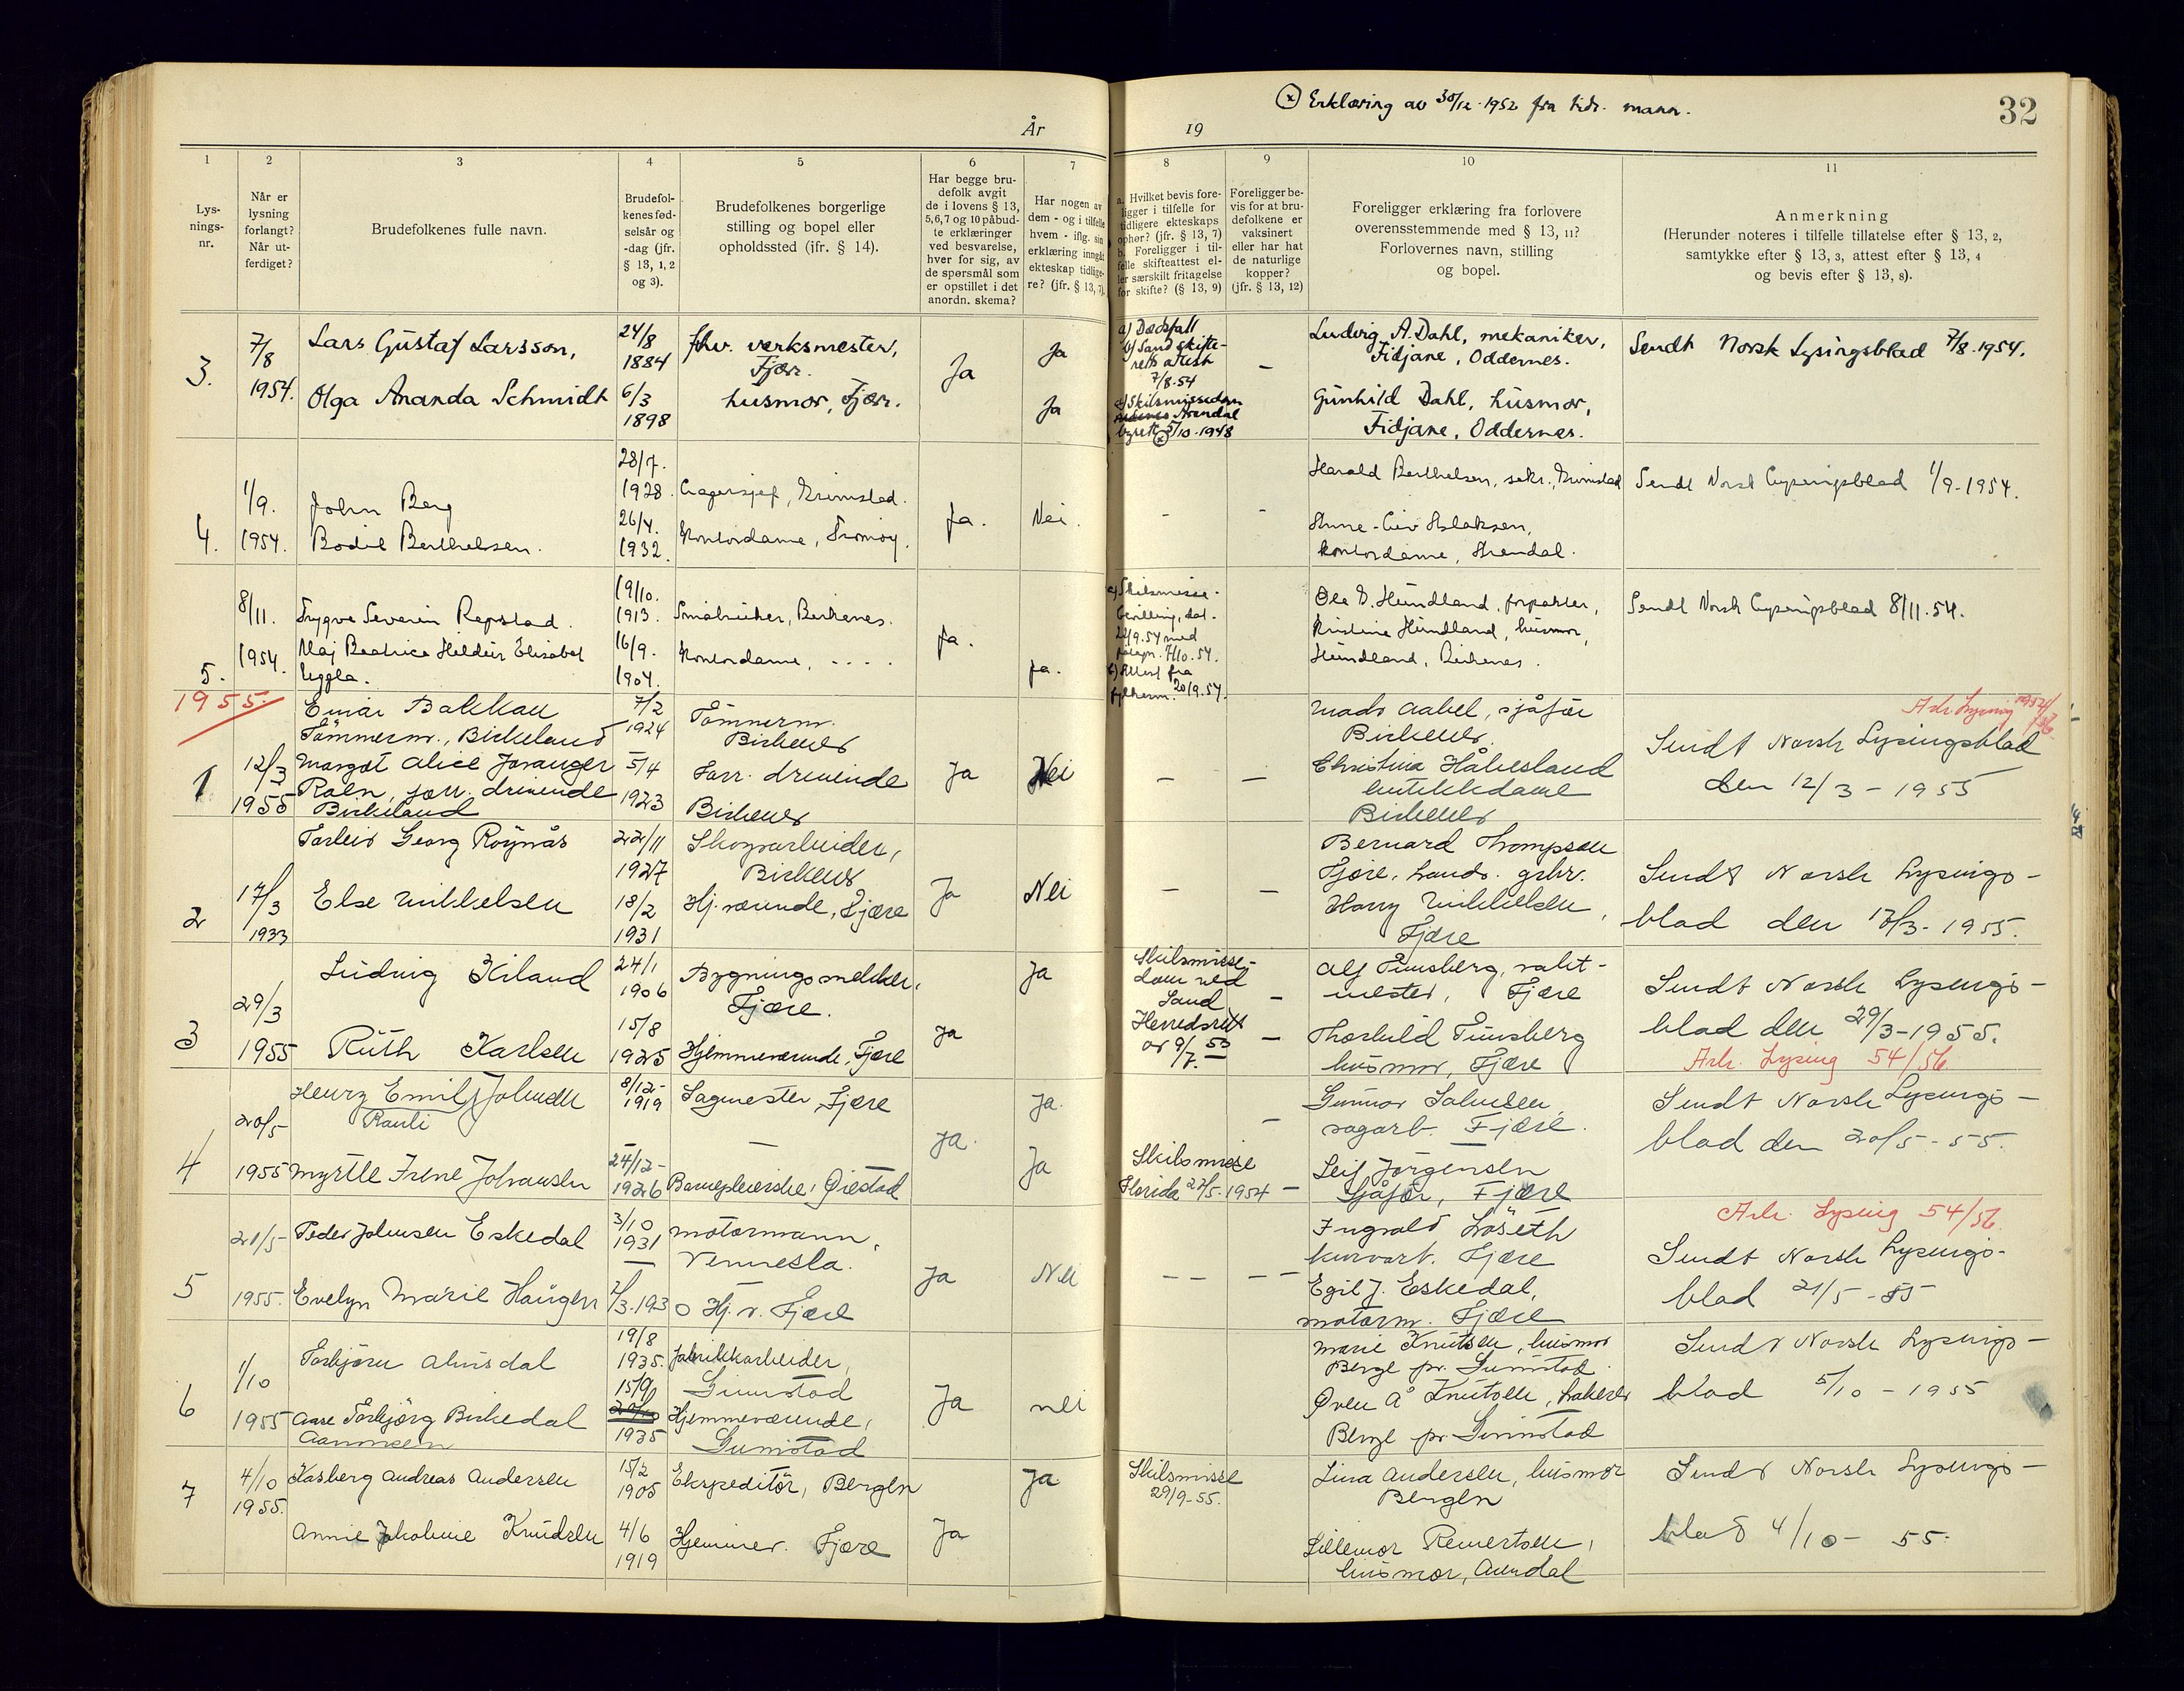 ⊗ Erklæring av 30/12-1952 fra tidl. mann.
32
År
19
1
2
3
4
5
6
7
8
9
10
11
Lys-
nings-
nr.
Når er
lysning
forlangt?
Når ut-
ferdiget?
Brudefolkenes fulle navn.
Brudefol-
kenes fød-
selsår og
-dag (jfr.
§ 13, 1, 2
og 3).
Brudefolkenes borgerlige
stilling og bopel eller
opholdssted (jfr. § 14).
Har begge bru-
defolk avgit
de i lovens § 13,
5,6,7 og 10 påbud-
te erklæringer
ved besvarelse,
hver for sig, av
de spørsmål som
er opstillet i det
anordn. skema?
Har nogen av
dem - og i tilfelle
hvem - iflg. sin
erklæring inngått
ekteskap tidlige-
re? (jfr. § 13, 7).
a. Hvilket bevis fore-
ligger i tilfelle for
tidligere ekteskaps
ophør? (jfr. § 13, 7)
b. Foreligger i til-
felle skifteattest el-
ler særskilt fritagelse
for skifte? (§ 13, 9)
Foreligger be-
vis for at bru-
defolkene er
vaksinert
eller har hat
de naturlige
kopper?
(jfr. § 13, 12)
Foreligger erklæring fra forlovere
overensstemmende med § 13, 11?
Forlovernes navn, stilling
og bopel.
Anmerkning
(Herunder noteres i tilfelle tillatelse efter § 13, 2,
samtykke efter § 13, 3, attest efter § 13, 4
og bevis efter § 13, 8).
3.
7/8
1954.
Lars Gustaf Larsson,
Olga Ananda Schmidt
24/8
1884
6/3
1898
fhv. verksmester,
Fjære.
husmor, Fjære.
Ja
Ja
Ja
a) Dødsfall
b) Sand skifte-
retts attest
7/8-54
a) Skilsmissedom
Arendal
byrett ⊗ 5/10-1948
–
Ludvig A. Dahl, mekaniker,
Fidjane, Oddernes.
Gunhild Dahl, husmor,
Fidjane, Oddernes.
Sendt Norsk Lysingsblad 7/8-1954.
4.
1/9.
1954.
John Berg
Bodil Berthelsen.
28/7.
1928.
26/4.
1932.
Lagersjef, Grimstad.
Kontordame, Tromøy.
Ja.
Nei.
-
-
Harald Berthelsen, sekr., Grimstad
Anne-Liv Aslaksen,
kontordame, Arendal.
Sendt Norsk Lysingsblad 1/9-1954.
5.
8/11.
1954.
Trygve Severin Repstad.
Maj Beatrice Hildur Elisabet
Uggla.
19/10.
1913.
16/9.
1904.
Småbruker, Birkenes.
Kontordame, - - - -
Ja.
Ja.
a) Skilsmisse-
bevilling, dat.
22/9.54 med
påtegn. 7/10.54.
b) Attest fra
fylkesm. 20/9.54.
Ole D. Hundland, forpakter,
Kristine Hundland, husmor,
Hundland, Birkenes.
Sendt Norsk Lysingsblad 8/11.54.
1955.
1
12/3
1955
Einar Bakkan
Tømmerm., Birkeland
Margot Alice Joranger
Roen, forr. drivende
Birkeland
7/2
1924
5/4
1923
Tømmerm.
Birkenes
Forr. drivende
Birkenes
Ja
Nei
–
–
Mads Aabel, sjåfør
Birkenes.
Christina Håbesland
butikkdame
Birkenes
Sendt Norsk Lysingsblad
den 12/3 - 1955
2
17/3
1933
Torleiv Georg Røynås
Else Mikkelsen
22/11
1927
18/2
1931
Skogsarbeider,
Birkenes
Hj. værende, Fjære
Ja
Nei
–
–
Bernard Thompson
Fjære, Lands. gsbr.
Harry Mikkelsen,
Fjære
Sendt Norsk Lysings-
blad den 17/3- 1955.
3
29/3
1955
Ludvig Kiland
Ruth Karlsen
24/1
1906
15/8
1925
Bygningssnekker,
Fjære.
Hjemmeværende, Fjære
Ja
Ja
Skilsmisse-
dom ved
Sand
Herredsrett
av 9/7. 53
–
–
Alf Tunsberg, vakt-
mester, Fjære
Thorhild Tunsberg
husmor, Fjære
Sendt Norsk Lysings-
blad den 29/3-1955.
Ark. Lysing 54/56
4
20/5
1955
Henry Emil Johnsen
Rauli
Myrtle Irene Johansen
8/12-
1919
24/12-
1926
Sagmester, Fjære
–
Barnepleierske, Øiestad
Ja.
Ja.
Ja
Skilsmisse
Florida 22/5-1954
–
–
Gunnar Salvesen,
sagarb. Fjære.
Leif Jørgensen
Sjåfør, Fjære
Sendt Norsk Lysings-
blad den 20/5-55.
5
21/5
1955.
Peder Johnsen Eskedal
Evelyn Marie Haugen
3/10
1931
2/3-1930
motormann,
Vennesla.
Hj. v. Fjære
Ja
Nei
– –
– –
Ingvald Løseth
kurvarb. Fjære
Egil J. Eskedal,
motorm. Fjære
Ark. Lysing 54/56.
Sendt Norsk Lysings-
blad 21/5 -55
6
1/10
1955
Torbjørn Ahusdal
Aase Torbjørg Birkedal
Aanonsen
19/8
1935.
15/9
1935
fabrikkarbeider,
Grimstad
Hjemmeværende,
Grimstad
Ja
nei
Marie Knutsen, husmor
Berge pr. Grimstad
Øven Å Knutsen, baker
Berge pr. Grimstad
Sendt Norsk Lysings-
blad 5/10 - 1955
7
4/10
1955.
Kasberg Andreas Andersen
Annie Jakobine Knudsen
15/2
1905
4/6
1919
Ekspeditør, Bergen
Hjemmev. Fjære
Ja
Ja
Skilsmisse
29/9-55.
Lina Andersen, husmor
Bergen
Lillemor Reinertsen,
husmor, Arendal
Sendt Norsk Lysings-
blad 4/10- 55.